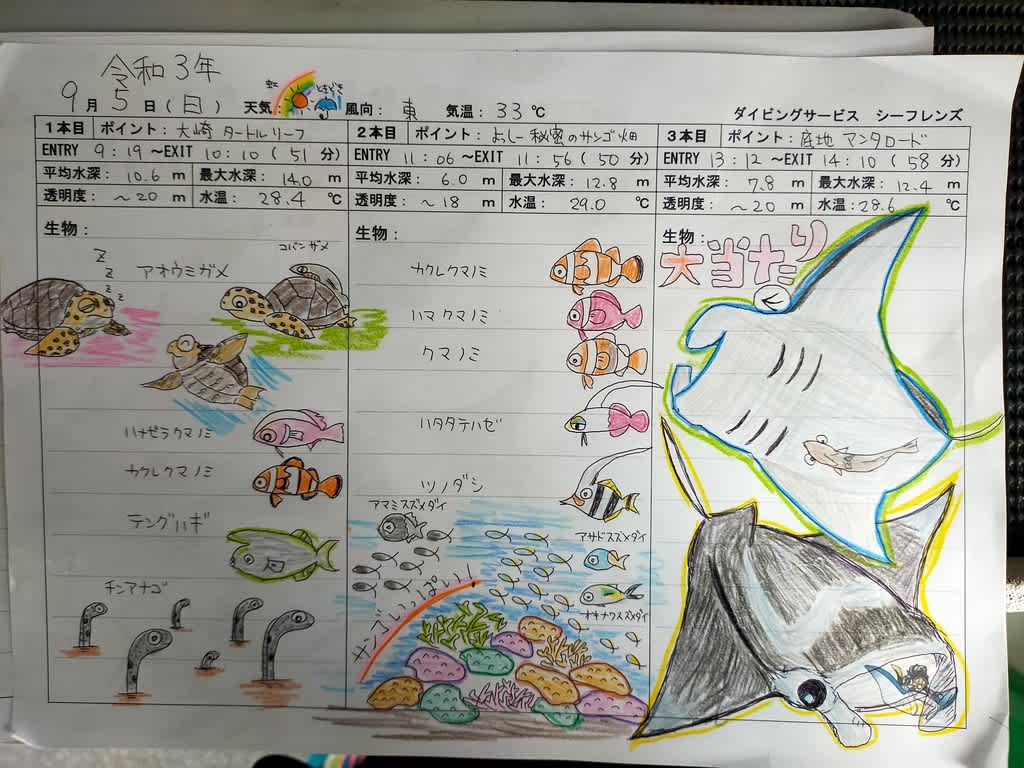 令和3年
9月5日(日) 天気: 虹 ときどき 風向: 東 気温: 33℃
ダイビングサービス シーフレンズ
1本目 ポイント: 大崎 タートルリーフ
ENTRY 9:19 ~EXIT 10:10 (51分)
平均水深: 10.6 m 最大水深: 14.0 m
透明度: ~20 m 水温: 28.4 ℃
生物:
コバンザメ
Z
Z
Z
Z
アオウミガメ
ハナビラクマノミ
カクレクマノミ
テングハギ
チンアナゴ
2本目 ポイント: よしー秘密のサンゴ畑
ENTRY 11:06 ~EXIT 11:56 (50分)
平均水深: 6.0 m 最大水深: 12.8 m
透明度: ~18 m 水温: 29.0 ℃
生物:
カクレクマノミ
ハマクマノミ
クマノミ
ハタタテハゼ
ツノダシ
アマミスズメダイ
アサドスズメダイ
サンゴでいっぱい!
3本目 ポイント: 底地 アンタロード
ENTRY 13:12 ~EXIT 14:10 (58分)
平均水深: 7.8 m 最大水深: 12.4 m
透明度: ~20 m 水温: 28.6 ℃
生物:
大当たり